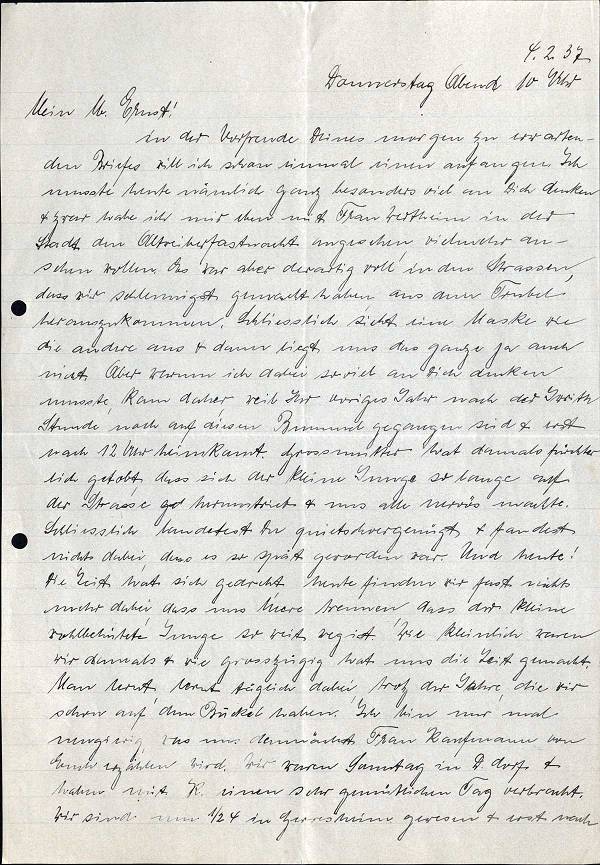 4. 2. 37
Donnerstag Abend 10 Uhr
Mein lb. Ernst!
in der Vorfreude Deines morgen zu erwarten-
den Briefes will ich schon einmal einen anfangen. Ich
musste heute nämlich ganz besonders viel an Dich denken
+ zwar habe ich mir eben mit Frau Wertheim in der
Stadt den Altweiberfastnacht angesehen, vielmehr an-
sehen wollen. Es war aber derartig voll in den Strassen,
dass wir schleunigst gemacht haben aus dem Trubel
herauszukommen. Schliesslich sieht eine Maske wie
die andere aus + dann liegt uns das ganze ja auch
nicht. Aber warum ich dabei so viel an Dich denken
musste, kam daher weil Ihr voriges Jahr nach der Iwrith
Stunde noch auf diesen Bummel gegangen seid + erst
nach 12 Uhr heimkamt. Grossmutter hat damals fürchter
lich getobt, dass sich der kleine Junge so lange auf
der Strasse herumtrieb + uns alle nervös machte.
Schliesslich landetest Du quietschvergnügt + fandest
nichts dabei, dass es so spät geworden war. Und heute!
Die Zeit hat sich gedreht heute finden wir fast nichts
mehr dabei dass uns Meere trennen dass der kleine
wohlbehütete Junge so weit weg ist. Wie kleinlich waren
wir damals + wie grosszügig hat uns die Zeit gemacht.
Man lernt, lernt täglich dabei trotz der Jahre, die wir
schon auf dem Buckel haben. Ich bin nur mal
neugierig, was uns demnächst Frau Kaufmann von
Euch erzählen wird. Wir waren Samstag in D.dorf +
haben mit K. einen sehr gemütlichen Tag verbracht.
Wir sind um 1/2 4 in Gerresheim gewesen + erst nach